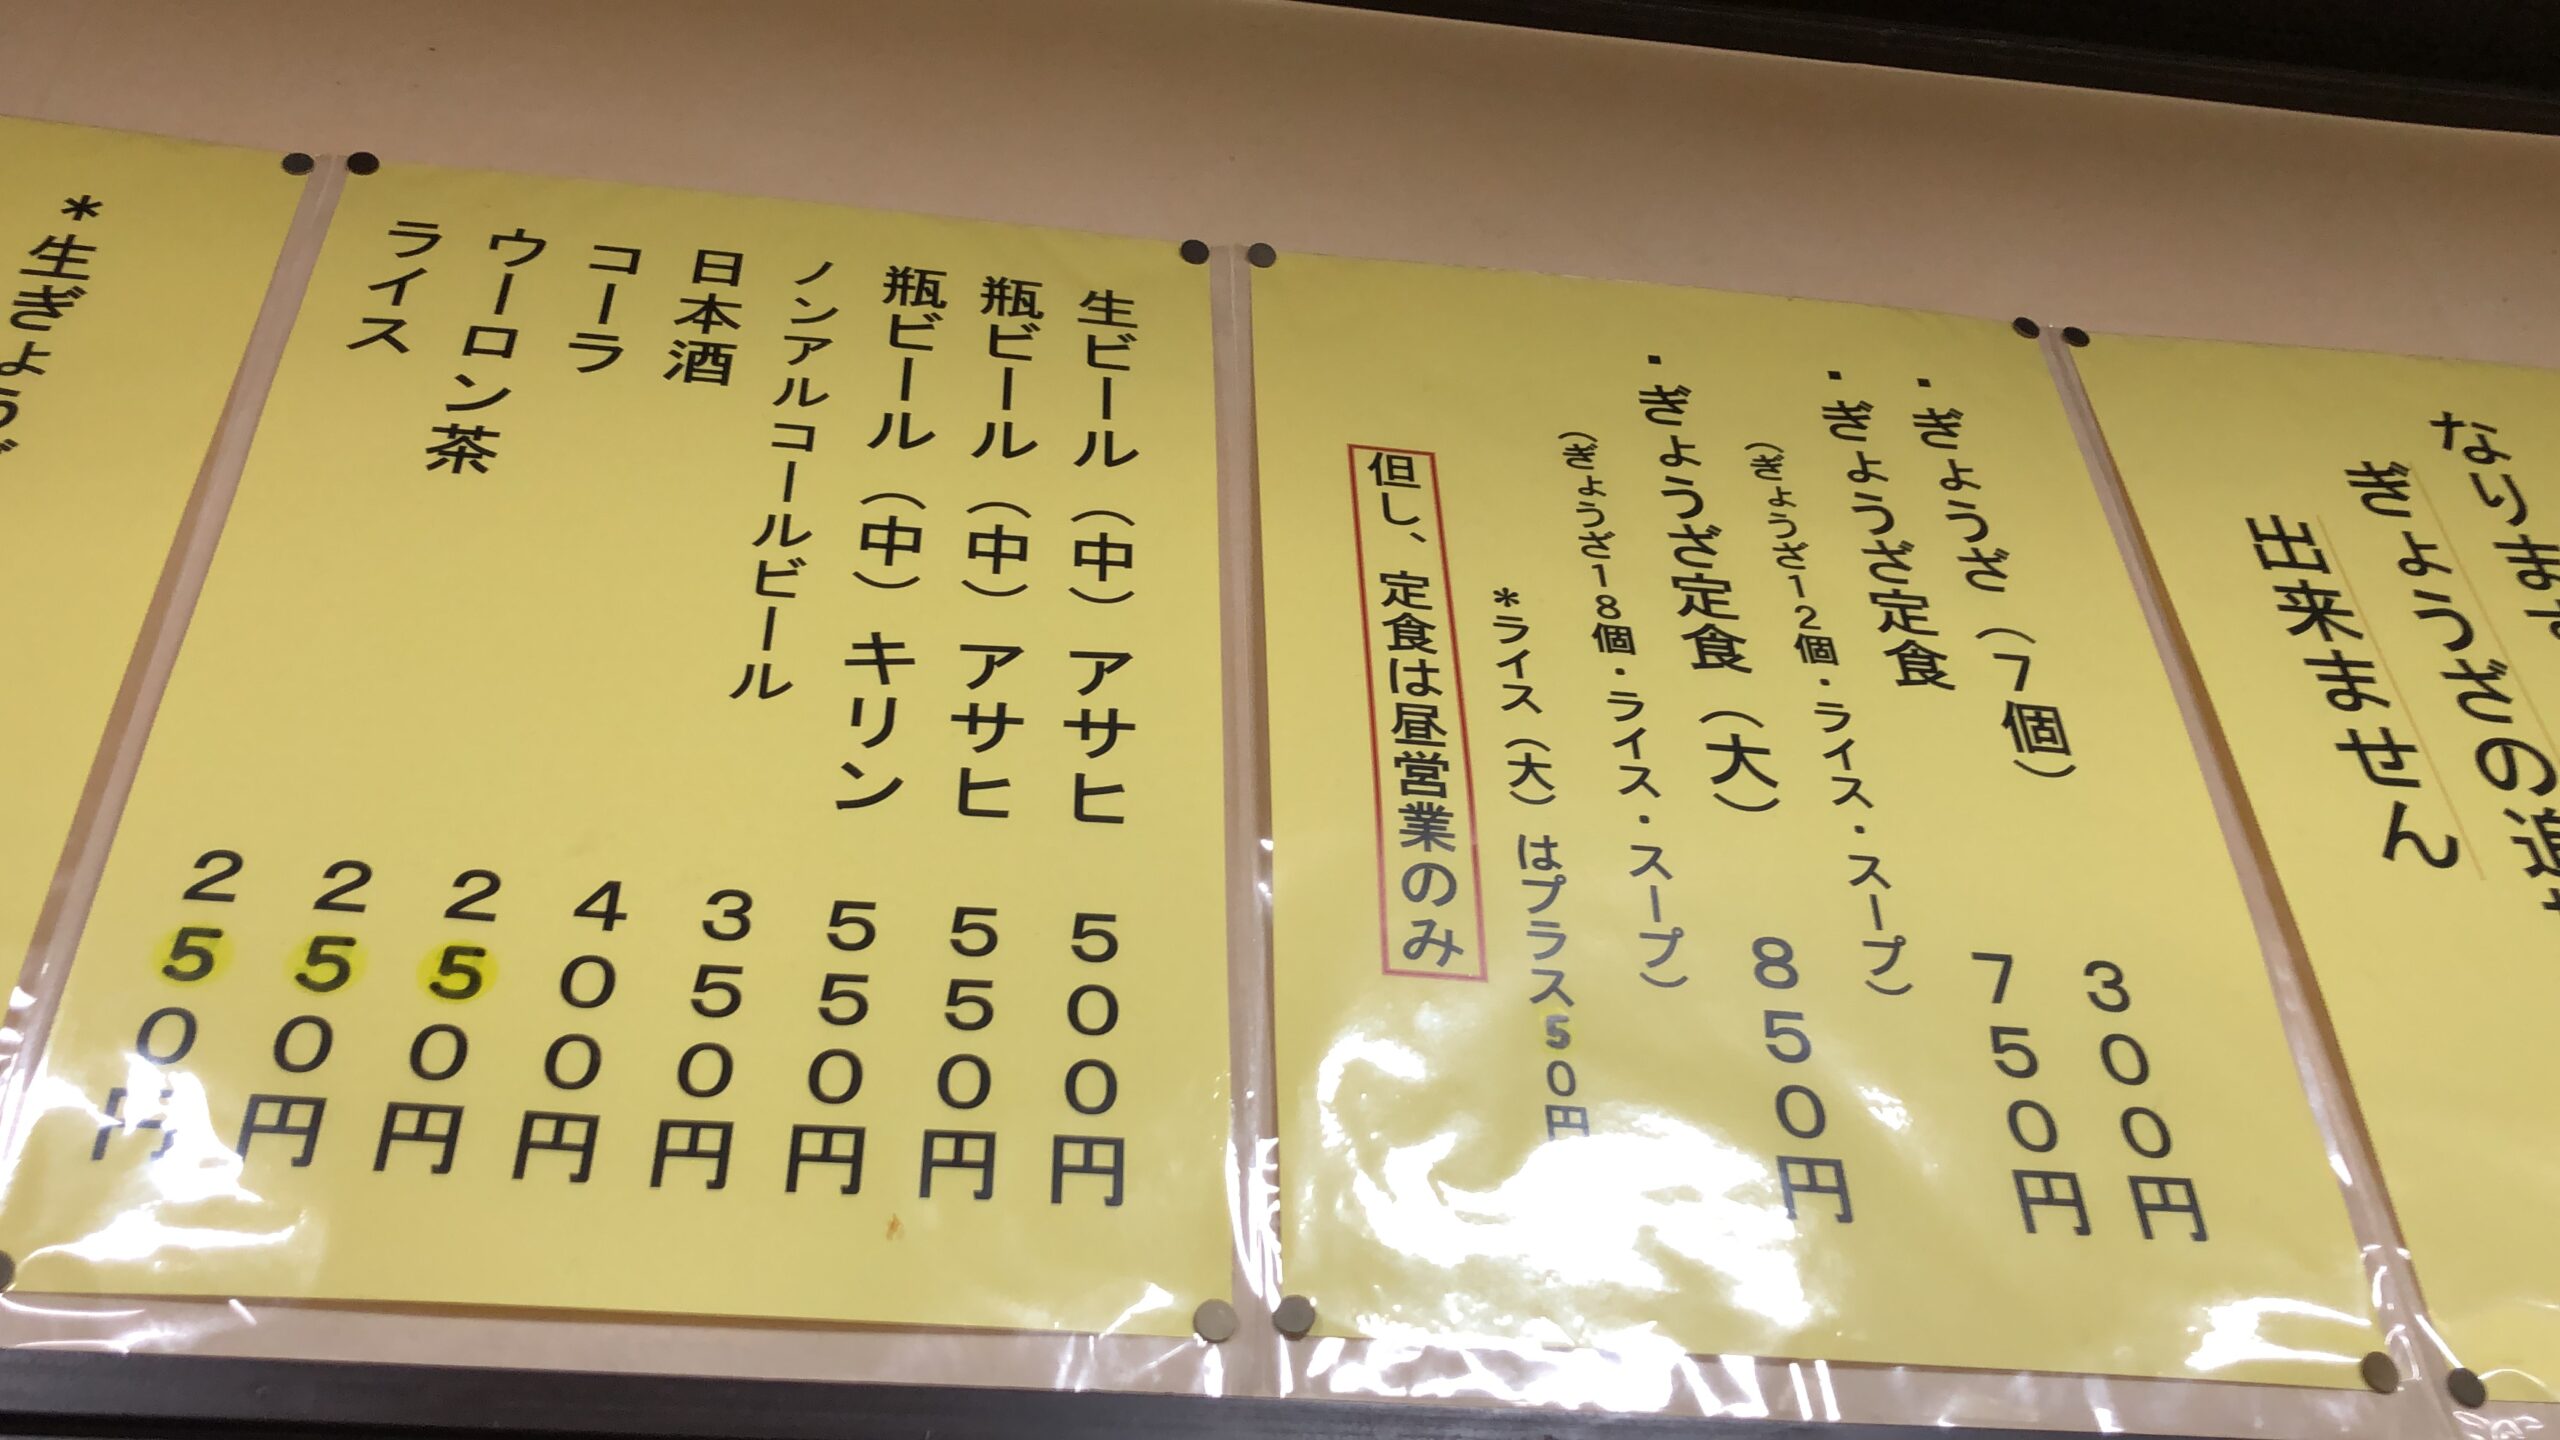 なります
ぎょうざの追
出来ません
・ぎょうざ(7個) 300円
・ぎょうざ定食 750円
(ぎょうざ12個・ライス・スープ)
・ぎょうざ定食(大) 850円
(ぎょうざ18個・ライス・スープ)
*ライス(大)はプラス50円
但し、定食は昼営業のみ
生ビール(中)アサヒ 500円
瓶ビール(中)アサヒ 550円
瓶ビール(中)キリン 550円
ノンアルコールビール 350円
日本酒 400円
コーラ 250円
ウーロン茶 250円
ライス 250円
*生ぎょうざ